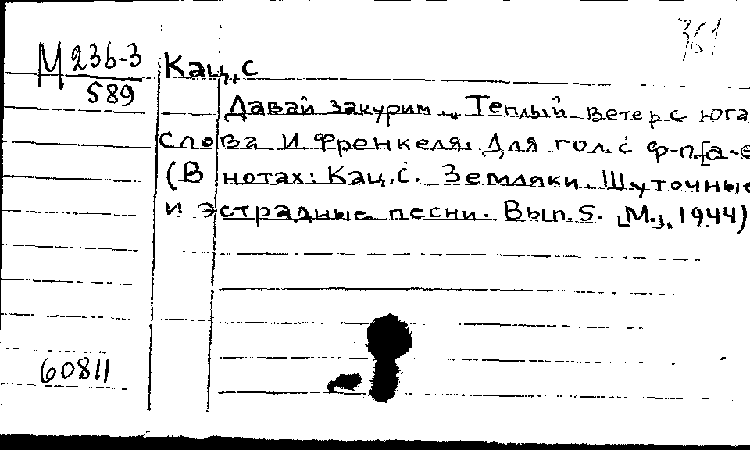 361
М 236-3
589
Кац, С
Давай закурим... Теплый ветер с юга
Слова И. Френкеля. Для гол. с ф-п. [a-e
(В нотах: Кац. С. Земляки. Шуточные
и эстрадные песни. Вып. 5. [М.], 1944)
60811